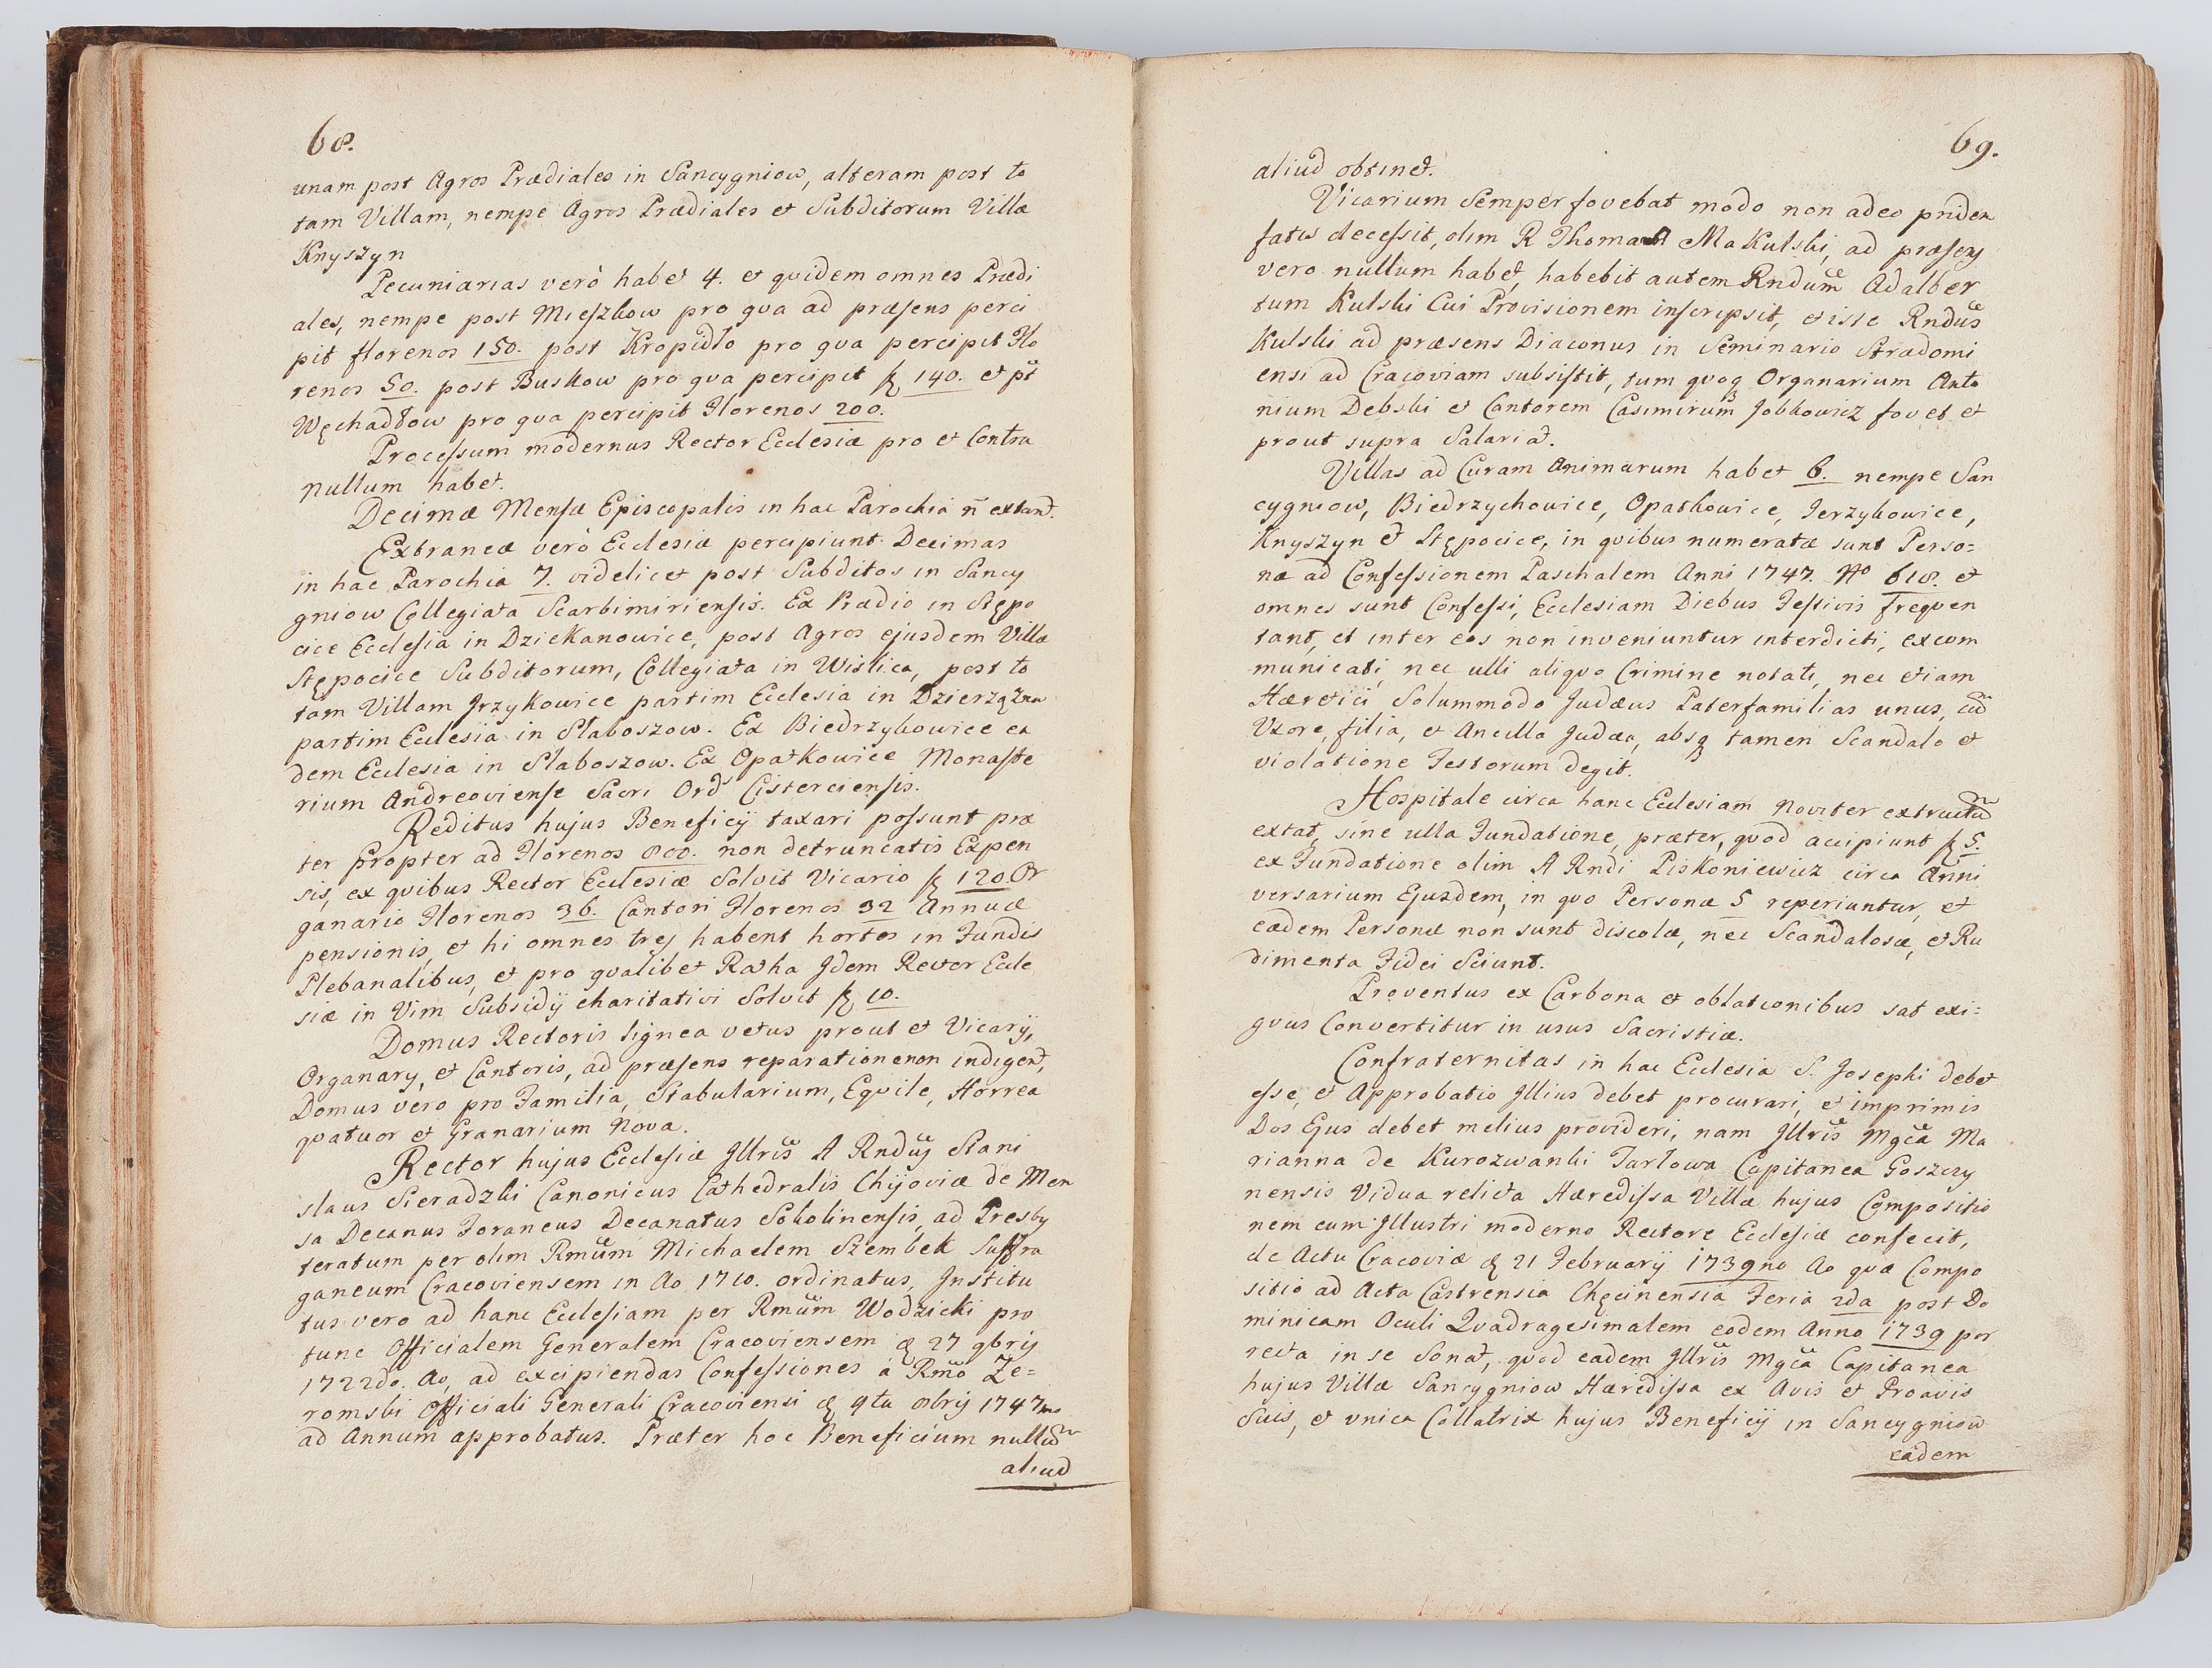 68.
unam post Agros Prædiales in Sancygniow, alteram post to
tam Villam, nempe Agros Prædiales et Subditorum Villæ
Knyszyn
Pecuniarias verò habet 4. et qvidem omnes Prædi
ales, nempe post Mieszkow pro qva ad præsens perci
pit florenos 150. post Kropidło pro qva percipit Flo
renos 50. post Buskow pro qva percipit fl 140. et pt
Węchadłow pro qva percipit Florenos 200.
Processum modernus Rector Ecclesiæ pro et Contra
nullum habet.
Decimæ Mensæ Episcopalis in hac Parochia n̄ extant.
Extraneæ verò Ecclesiæ percipiunt Decimas
in hac Parochia 7. videlicet post Subditos in Sancy
gniow Collegiata Scarbimiriensis. Ex Prædio in Stępo
cice Ecclesia in Dziekanowice, post Agros ejusdem Villæ
Stępocice Subditorum, Collegiata in Wislica, post to
tam Villam Jrzykowice partim Ecclesia in Dzierzążna
partim Ecclesia in Słaboszow. Ex Biedrzykowice ea
dem Ecclesia in Słaboszow. Ex Opatkowice Monaste
rium Andreoviense Sacri Ord Cisterciensis.
Reditus hujus Beneficÿ taxari possunt præ
ter propter ad Florenos 800. non detruncatis Expen
sis, ex qvibus Rector Ecclesiæ Solvit Vicario fl 120. Or
ganario Florenos 36. Cantori Florenos 32 Annuæ
pensionis, et hi omnes trej habent hortos in Fundis
Plebanalibus, et pro qvalibet Ratha Jdem Rector Eccle
siæ in Vim Subsidÿ charitativi Solvit fl 10.
Domus Rectoris lignea vetus prout et Vicarÿ,
Organary, et Cantoris, ad præsens reparatione non indigent,
Domus vero pro Familia, Stabularium, Eqvile, Horrea
qvatuor et Granarium Nova.
Rector hujus Ecclesiæ Jllris A Rndus Stani
slaus Sieradzki Canonicus Cathedralis Chijoviæ de Men
sa Decanus Foraneus Decanatus Sokolinensis, ad Presby
teratum per olim Rmum Michaelem Szembek Suffra
ganeum Cracoviensem in Ao 1710. ordinatus, Institu
tus vero ad hanc Ecclesiam per Rmum Wodzicki pro
tunc Officialem Generalem Cracoviensem d 27 9brÿ
1722do Ao, ad excipiendas Confessiones á Rmo Że=
romski Officiali Generali Cracoviensi d 9ta 8brij 1747mo
ad Annum approbatus. Præter hoc Beneficium nullum
aliud
69.
aliud obtinet.
Vicarium Semper fovebat modo non adeo pridem
fatis decessit, olim R Thomas Makulski, ad præsens
vero nullum habet, habebit autem Rndum Adalber
tum Kulski Cui Provisionem inscripsit, et iste Rndus
Kulski ad præsens Diaconus in Seminario Stradomi
ensi ad Cracoviam subsistit, tum qvoq Organarium Anto
nium Debski et Cantorem Casimirum Jobkowicz fovet et
prout supra Salariat.
Villas ad Curam Animarum habet 6. nempe San
cygniow, Biedrzychowice, Opatkowice, Jerzykowice,
Knyszyn et Stępocice, in qvibus numeratæ sunt Perso=
næ ad Confessionem Paschalem Anni 1747. No 618. et
omnes sunt Confessi, Ecclesiam Diebus Festivis freqven
tant, et inter eos non inveniuntur interdicti, excom
municati, nec ulli aliqvo Crimine notati, nec etiam
Hæretici, Solummodo Judæus Paterfamilias unus, cū
Uxore, filia, et Ancilla Judæa, absq tamen Scandalo et
violatione Festorum degit.
Hospitale circa hanc Ecclesiam noviter extructum
extat, sine ulla Fundatione, præter, qvod accipiunt fl 5.
ex Fundatione olim A Rndi Piskoniewicz circa Anni
versarium Ejusdem, in qvo Personæ 5 reperiuntur, et
eædem Personæ non sunt discolæ, nec Scandalosæ, et Ru
dimenta Fidei Sciunt.
Proventus ex Carbona et oblationibus sat exi=
gvus Convertitur in usus Sacristiæ.
Confraternitas in hac Ecclesia S. Josephi debet
esse, et Approbatio Jllius debet procurari, et imprimis
Dos Ejus debet melius provideri, nam Jllris Mgca Ma
rianna de Kurozwanki Tarłowa Capitanea Goszczy
nensis Vidua relicta Hæredissa Villæ hujus Compositio
nem cum Jllustri moderno Rectore Ecclesiæ confecit,
de Actu Cracoviæ d 21 Februarÿ 1739no Ao qvæ Compo
sitio ad Acta Castrensia Chęcinensia Feria 2da post Do
minicam Oculi Qvadragesimalem eodem Anno 1739 por
recta in se Sonat, qvod eadem Jllris Mgca Capitanea
hujus Villæ Sancygniow Hæredissa ex Avis et Proavis
Suis, et unica Collatrix hujus Beneficÿ in Sancygniow
eadem